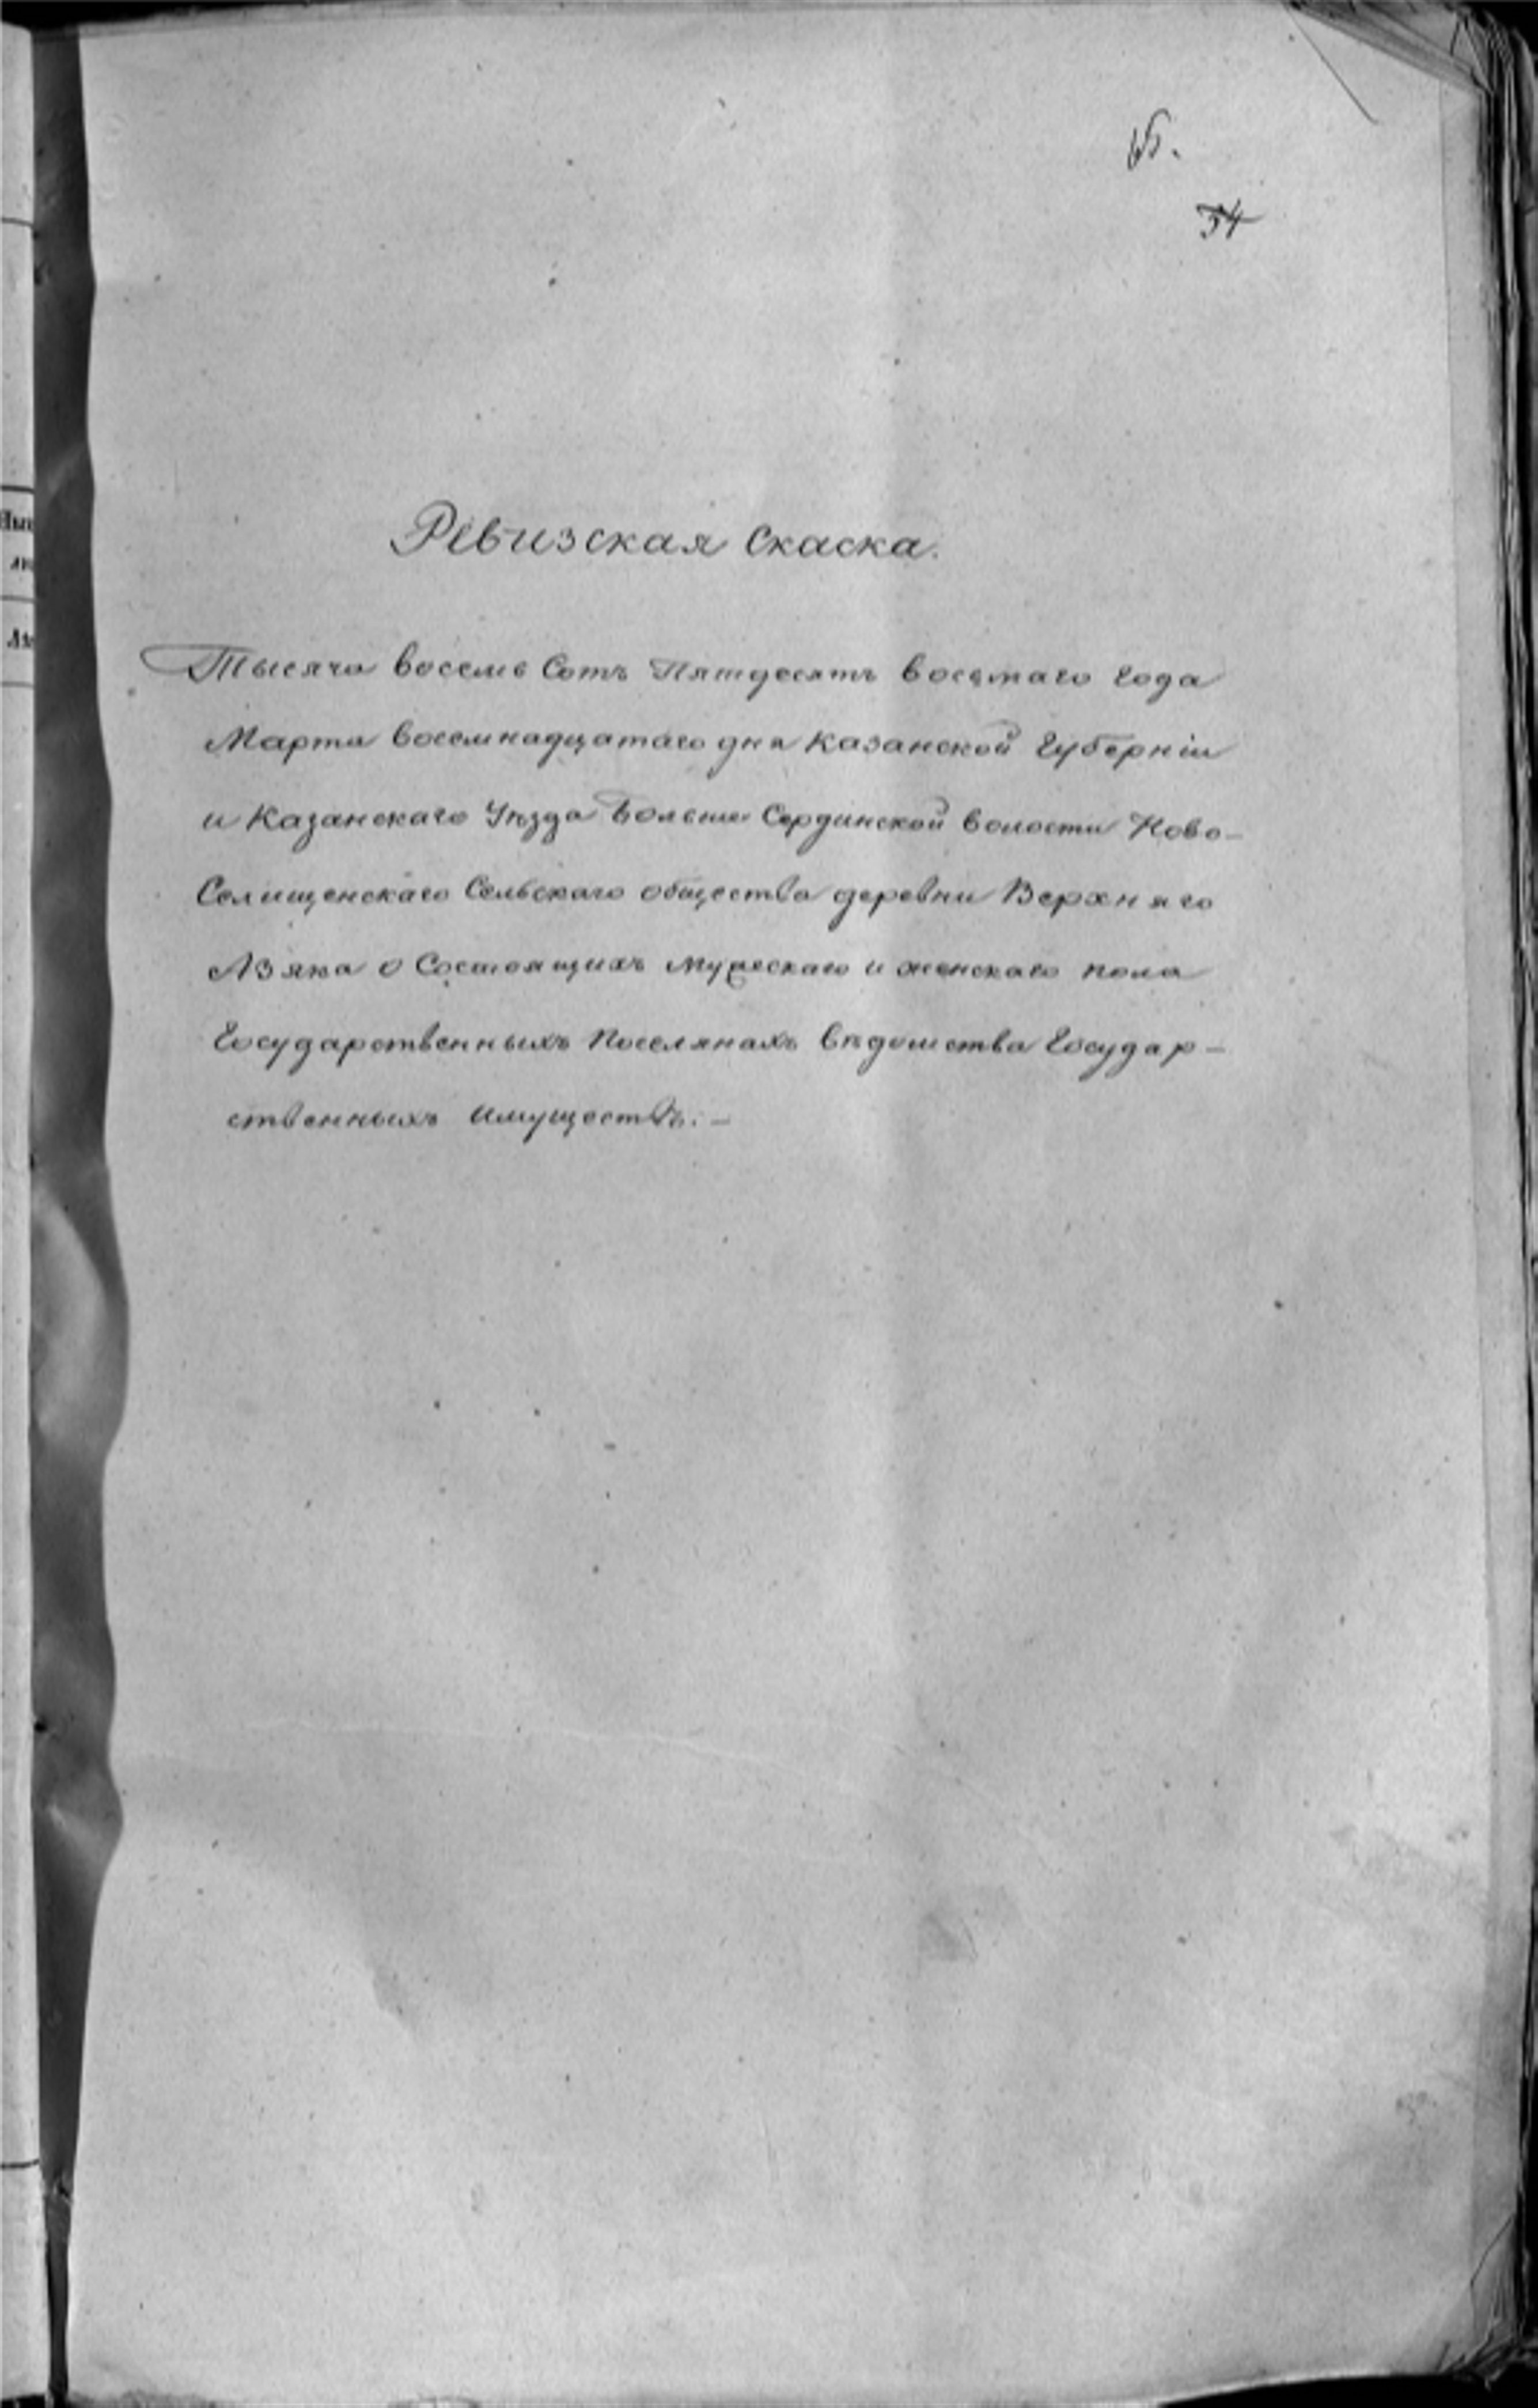 34
Ревизская Скаска.
Тысяча восемь Сотъ Пятдесятъ восьмаго года
Марта восемнадцатаго дня Казанской Губерніи
и Казанскаго Уѣзда Больше Сердинской волости Ново-
Селищенскаго Сельскаго общества деревни Верхняго
Азяка о Состоящихъ мужескаго и женскаго пола
Государственныхъ Поселянахъ вѣдомства Государ-
ственныхъ Имуществъ. -